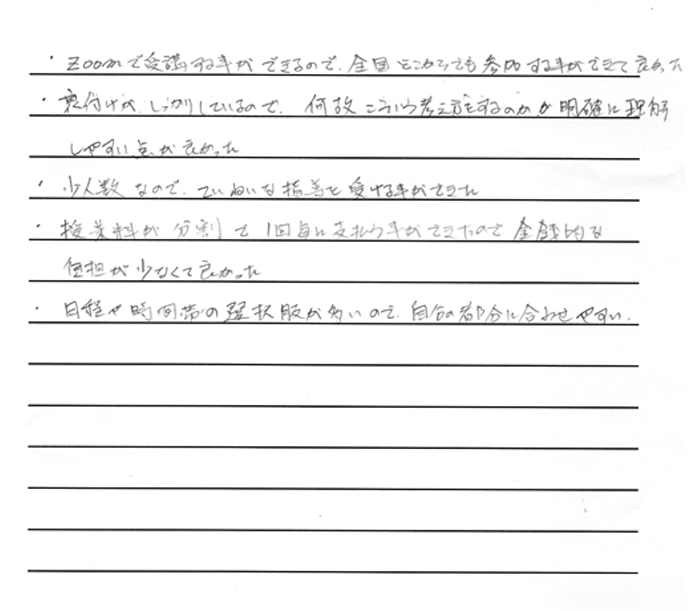 ・Zoomで受講する事ができるので、全国どこからでも参加する事ができて良かった
・裏付けがしっかりしているので、何故こういう考え方をするのかが明確に理解
しやすい点が良かった
・少人数なので、ていねいな指導を受ける事ができた
・授業料が分割で1回毎に支払う事ができたので金銭的な
負担が少なくて良かった
・日程や時間帯の選択肢が多いので、自分の都合に合わせやすい。